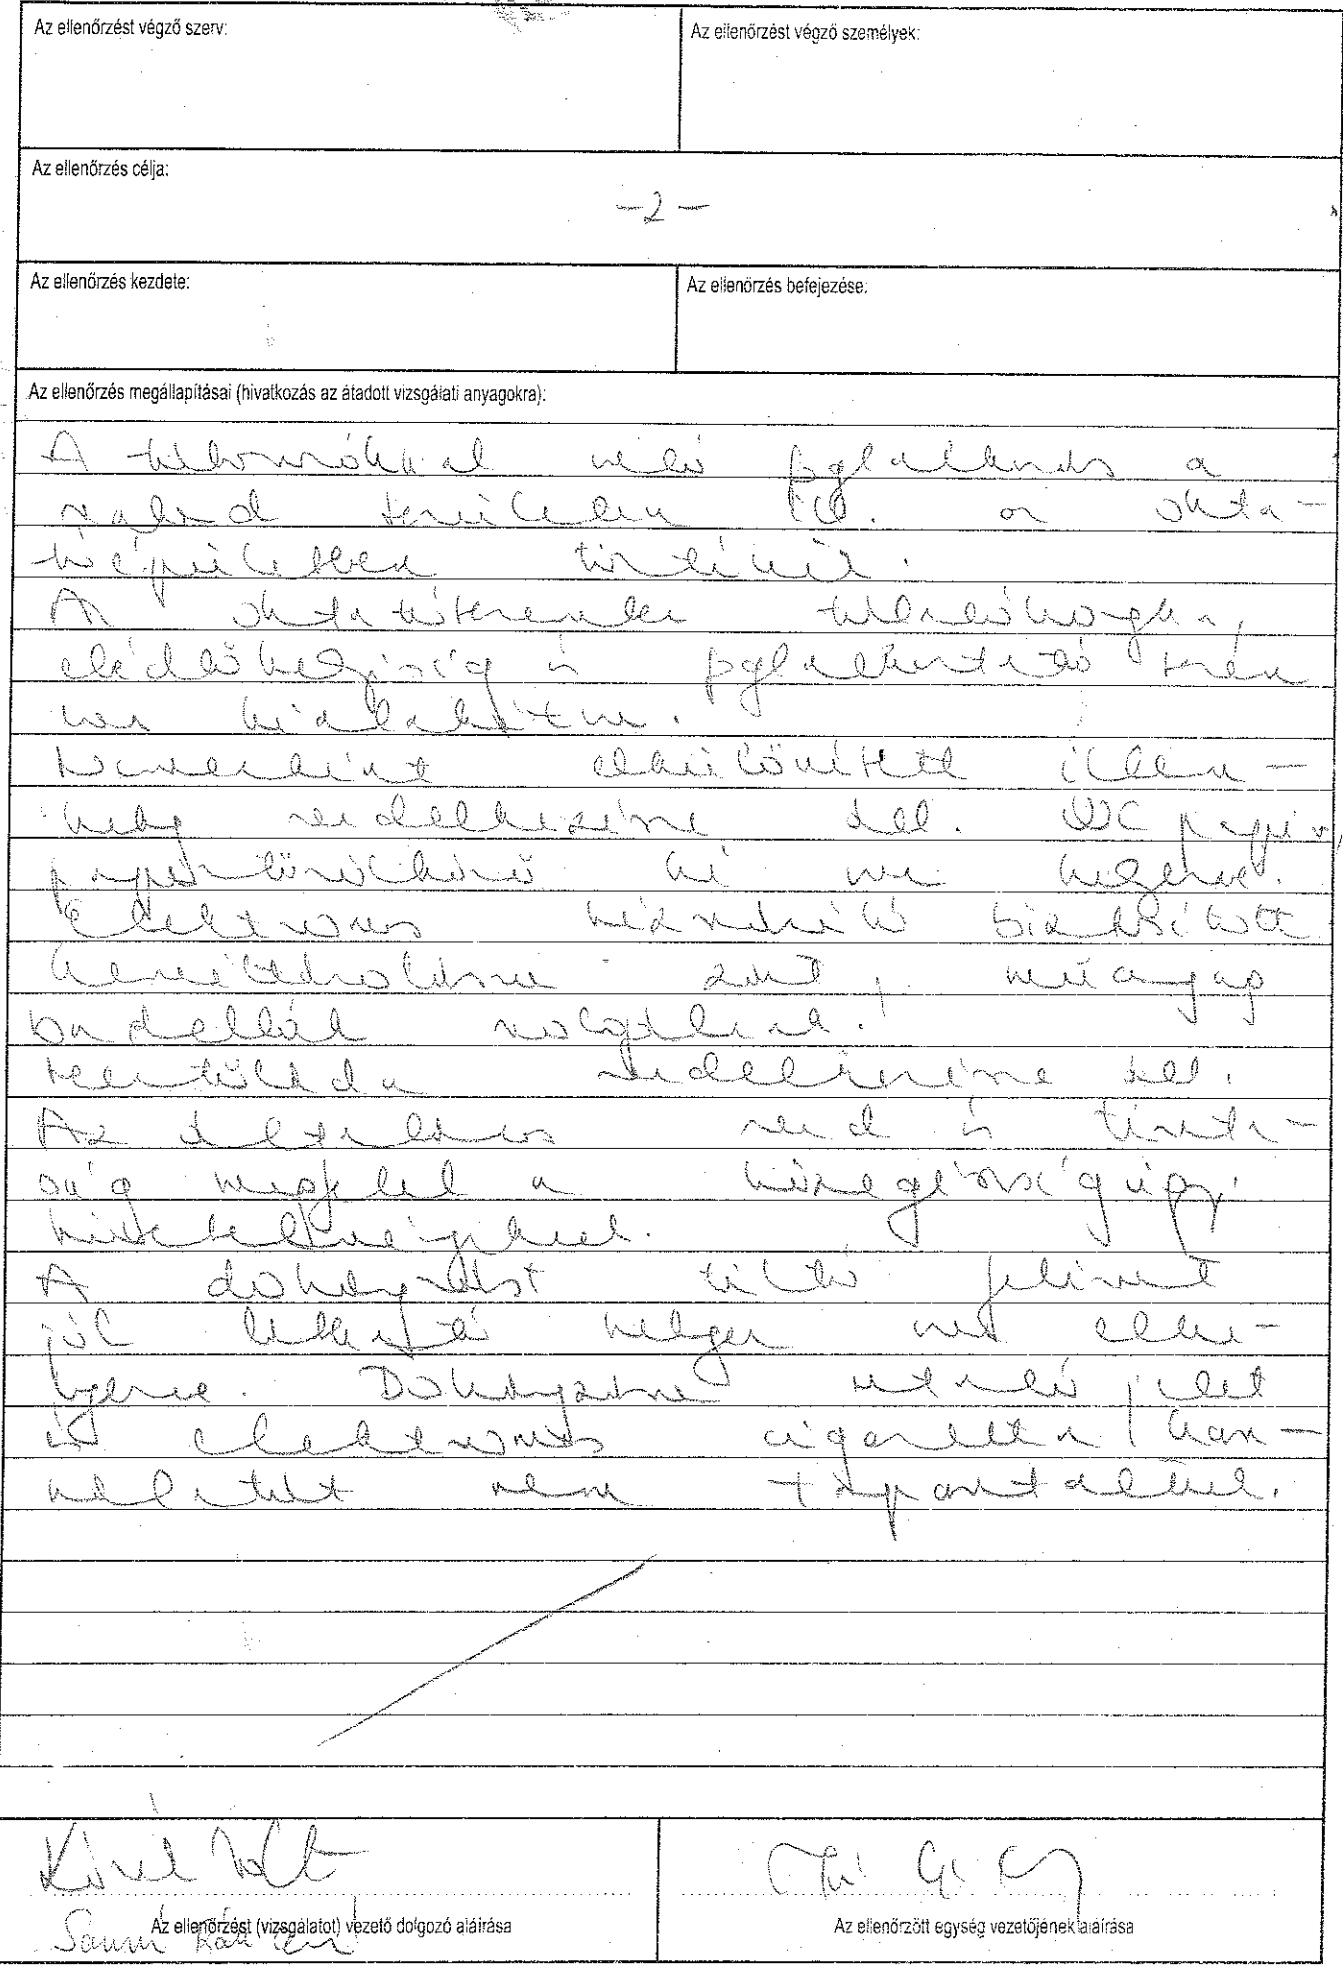 Az ellenőrzést végző szerv:
Az ellenőrzést végző személyek:
Az ellenőrzés célja:
-2-
Az ellenőrzés kezdete:
Az ellenőrzés befejezése:
Az ellenőrzés megállapításai (hivatkozás az átadott vizsgálati anyagokra):
A táborozókkal való foglalkozás a
szabad területen ill. az okta-
tóépületben történik.
Az oktatóterembe
előadóhelyiség és foglalkoztató terem
van kialakítva.
Nemenként elkülönített illem-
hely rendelkezésre áll. WC papír,
papírtörölköző ki van helyezve.
Elektromos kézszárító biztosított.
zárt, műanyag
szolgálnak.
rendelkezésre áll.
Az általános rend és tiszta-
ság megfelel a közegészségügyi
követelményeknek.
A dohányzást tiltó feliratot
jól látható helyen van elhe-
lyezve. Dohányzásra utaló jelet
és elektromos cigaretta hasz-
nálatát nem tapasztaltunk.
Az ellenőrzést (vizsgálatot) vezető dolgozó aláírása
Az ellenőrzött egység vezetőjének aláírása